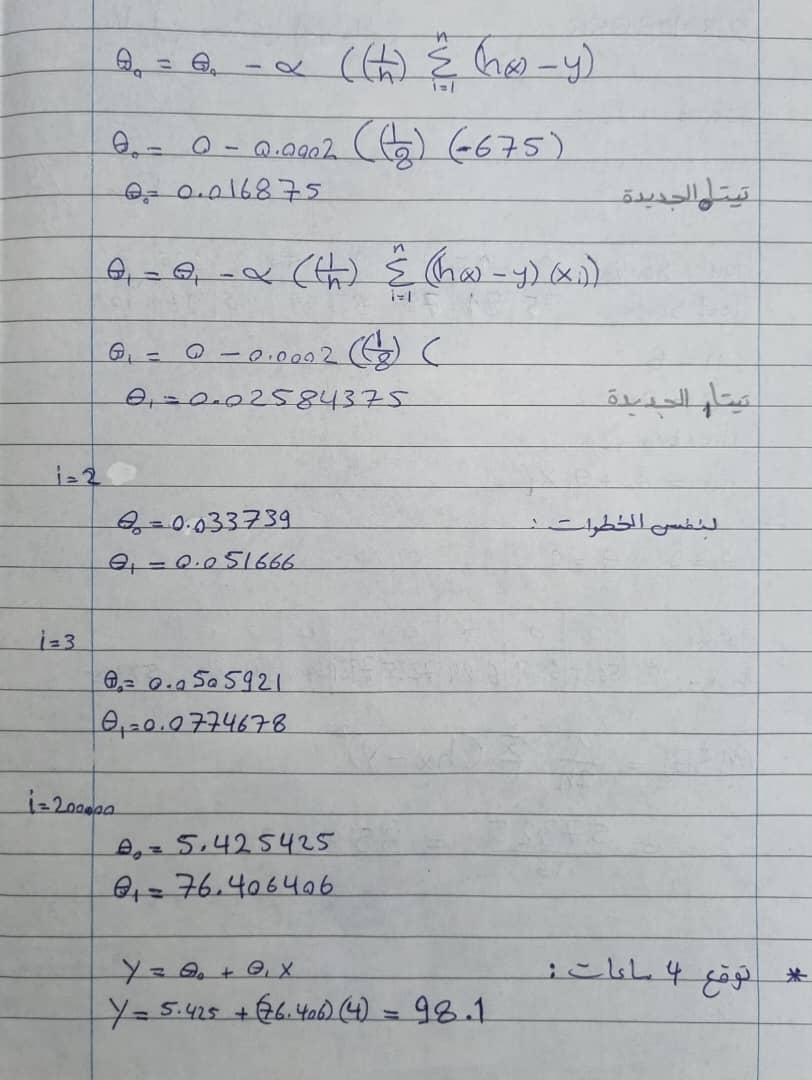 θ₀ = θ₀ - α ((1/n) Σ_{i=1}^{n} (h(x) - y)
θ₀ = 0 - 0.0002 ((1/8) (-675)
θ₀ = 0.016875 تيتا0 الجديدة
θ₁ = θ₁ - α ((1/n) Σ_{i=1}^{n} (h(x) - y) (xᵢ))
θ₁ = 0 - 0.0002 ((1/8) (
θ₁ = 0.02584375 تيتا1 الجديدة
i=2
θ₀ = 0.033739 لبنفس الخطوات :
θ₁ = 0.051666
i=3
θ₀ = 0.0505921
θ₁ = 0.0774678
i=200000
θ₀ = 5.425425
θ₁ = 76.406406
* توقع 4 ساعات :
y = θ₀ + θ₁ x
y = 5.425 + (76.406) (4) = 98.1